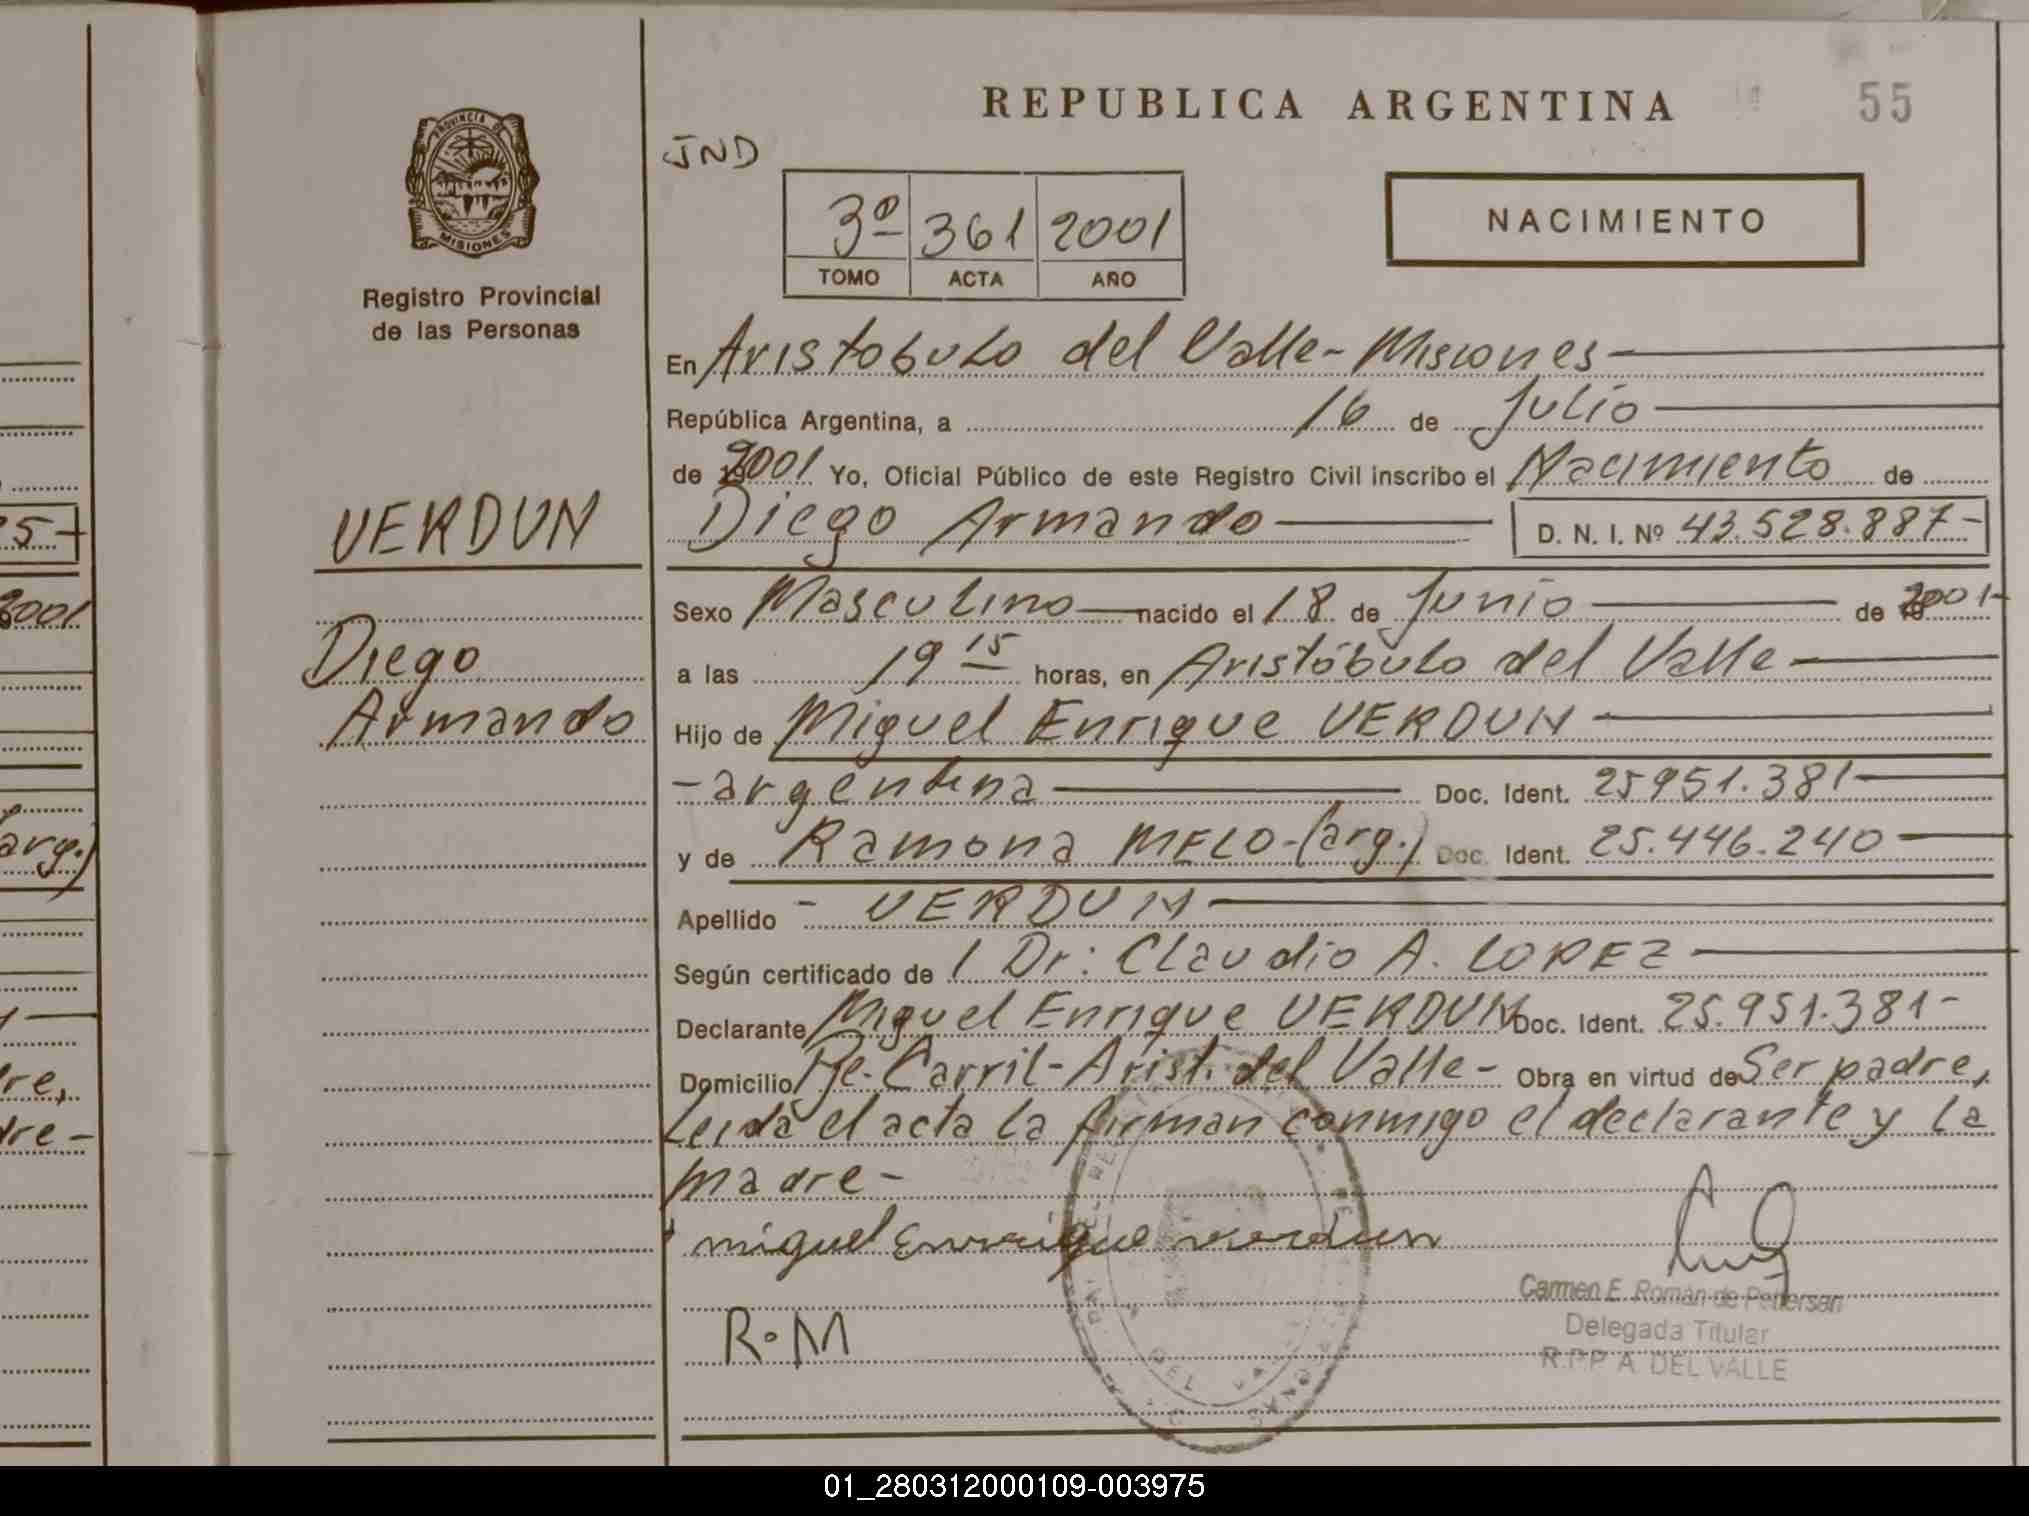 REPUBLICA ARGENTINA
55
PROVINCIA DE
MISIONES
Registro Provincial
de las Personas
JND
3º 361 2001
TOMO ACTA AÑO
NACIMIENTO
En Aristobulo del Valle - Misiones
República Argentina, a 16 de Julio
de 2001 Yo, Oficial Público de este Registro Civil inscribo el Nacimiento de
Diego Armando D. N. I. Nº 43.528.887-
VERDUN
Diego
Armando
Sexo Masculino nacido el 18 de Junio de 2001-
a las 19 15 horas, en Aristóbulo del Valle
Hijo de Miguel Enrique VERDUN
- argentina Doc. Ident. 25951.381-
y de Ramona MELO-(arg.) Doc. Ident. 25.446.240
Apellido - VERDUN
Según certificado de Dr: Claudio A. LOPEZ
Declarante Miguel Enrique VERDUN Doc. Ident. 25.951.381-
Domicilio Pje. Carril-Arist. del Valle- Obra en virtud de Ser padre,
Leida el acta la firman conmigo el declarante y la
madre-
miguel Enrrique verdun
R.M
Carmen E. Román de Petersen
Delegada Titular
R.P.P A. DEL VALLE
DEL VALLE
5-
2001
arg.)
dre,
dre-
01_280312000109-003975